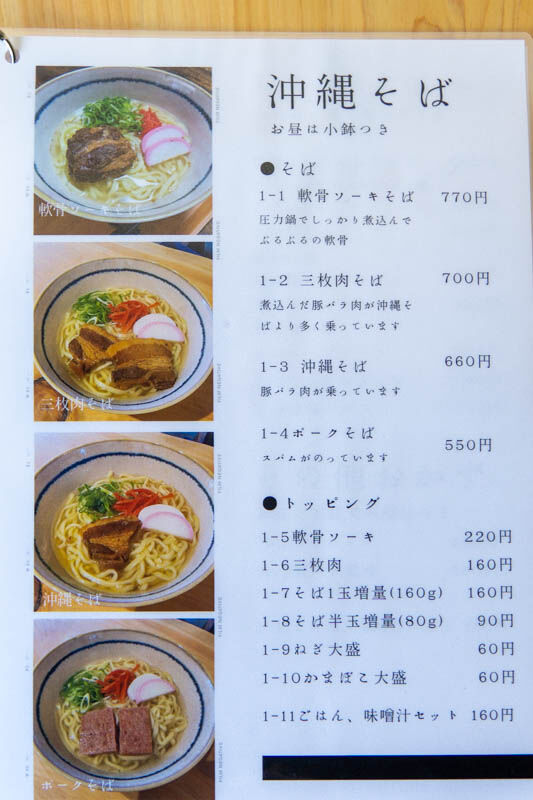 沖縄そば
お昼は小鉢つき
●そば
1-1 軟骨ソーキそば 770円
圧力鍋でしっかり煮込んで
ぷるぷるの軟骨
1-2 三枚肉そば 700円
煮込んだ豚バラ肉が沖縄そ
ばより多く乗っています
1-3 沖縄そば 660円
豚バラ肉が乗っています
1-4ポークそば 550円
スパムがのっています
●トッピング
1-5軟骨ソーキ 220円
1-6三枚肉 160円
1-7そば1玉増量(160g) 160円
1-8そば半玉増量(80g) 90円
1-9ねぎ大盛 60円
1-10かまぼこ大盛 60円
1-11ごはん、味噌汁セット 160円
軟骨ソーキそば
FILM NEGATIVE
三枚肉そば
FILM NEGATIVE
沖縄そば
FILM NEGATIVE
ポークそば
FILM NEGATIVE